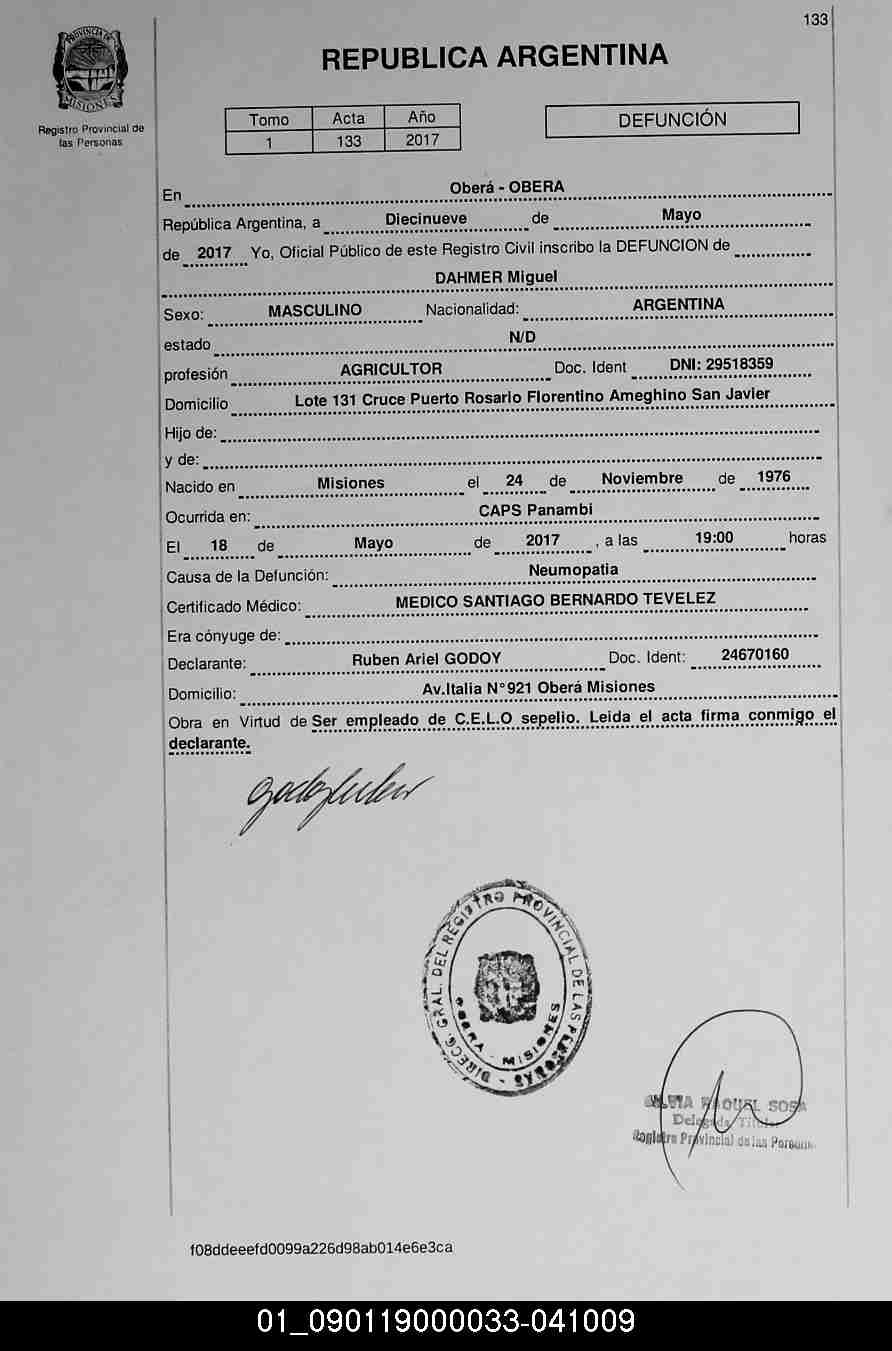 133
PROVINCIA DE
MISIONES
Registro Provincial de
las Personas
REPUBLICA ARGENTINA
Tomo Acta Año
1 133 2017
DEFUNCIÓN
En Oberá - OBERA
República Argentina, a Diecinueve de Mayo
de 2017 Yo, Oficial Público de este Registro Civil inscribo la DEFUNCION de
DAHMER Miguel
Sexo: MASCULINO Nacionalidad: ARGENTINA
estado N/D
profesión AGRICULTOR Doc. Ident DNI: 29518359
Domicilio Lote 131 Cruce Puerto Rosario Florentino Ameghino San Javier
Hijo de:
y de:
Nacido en Misiones el 24 de Noviembre de 1976
Ocurrida en: CAPS Panambi
El 18 de Mayo de 2017 , a las 19:00 horas
Causa de la Defunción: Neumopatia
Certificado Médico: MEDICO SANTIAGO BERNARDO TEVELEZ
Era cónyuge de:
Declarante: Ruben Ariel GODOY Doc. Ident: 24670160
Domicilio: Av.Italia N°921 Oberá Misiones
Obra en Virtud de Ser empleado de C.E.L.O sepelio. Leida el acta firma conmigo el
declarante.
DIRECC. GRAL. DEL REGISTRO PROVINCIAL DE LAS PERSONAS
OBERA - MISIONES
SILVIA RAQUEL SOSA
Delegada Titular
Registro Provincial de las Personas
f08ddeeefd0099a226d98ab014e6e3ca
01_090119000033-041009